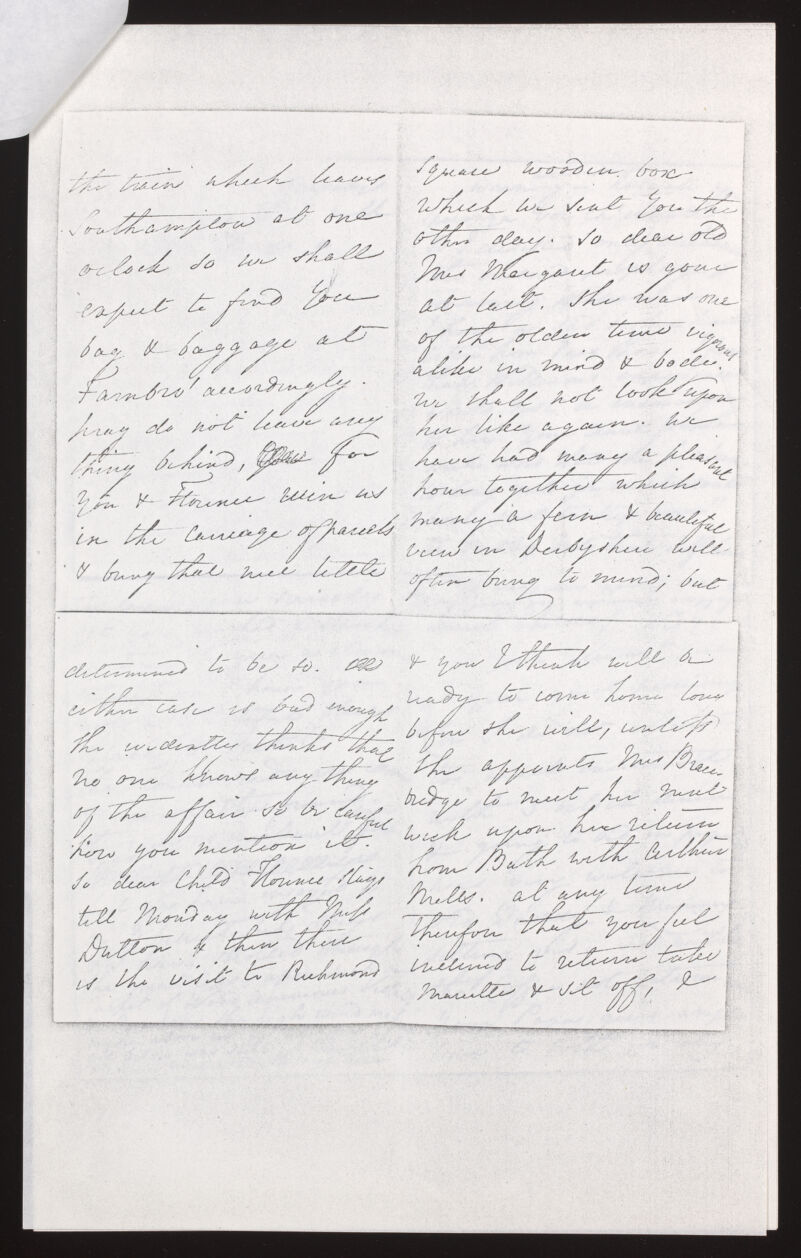 the train which leaves
Southampton at one
oclock so we shall
expect to find you
bag & baggage at
Farnbro' accordingly.
pray do not leave any
thing behind, for
you & Florence
in the carriage of parcels
& bring that nice little
square wooden box
which we sent you the
other day. So dear old
Mrs Margaret is gone
at last. She was one
of the olden time vigorous
alike in mind & bode.
We shall not look upon
her like again. We
have had many a pleasant
hour together which
many a fern & beautiful
view in Derbyshire will
often bring to mind; but
determined to be so.
either case is bad enough
She evidently thinks that
no one knows any thing
of the affair so be careful
how you mention it.
So dear Child Florence stays
till Monday with Miss
Dutton & then there
is the visit to Richmond
& you I think will be
ready to come home long
before she will, unless
she appoints Mrs Brace-
bridge to meet her next
week upon her return
from Bath with Arthur
Mills. at any time
therefore that you feel
inclined to return take
Mariette & set off, I